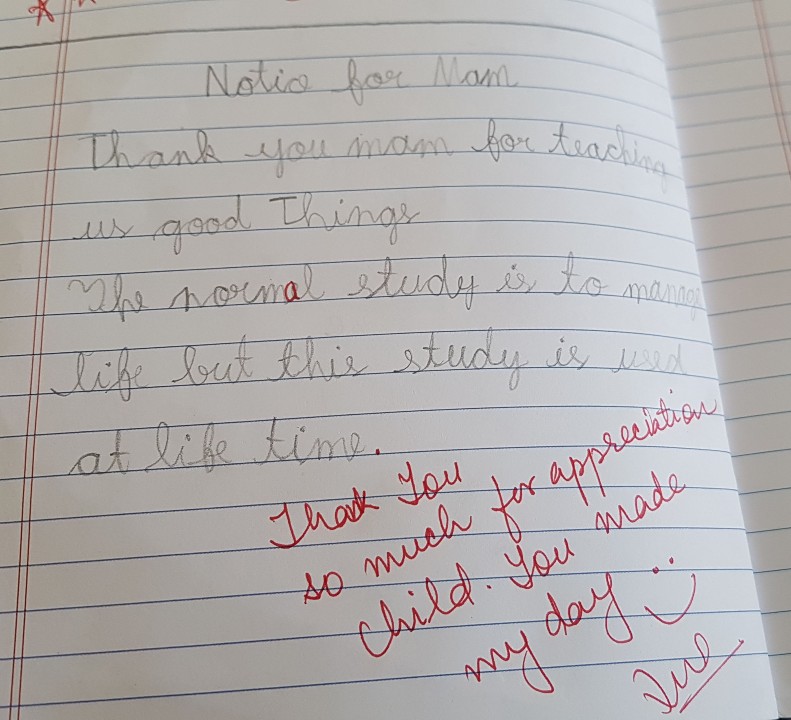 Notice for Mam
Thank you mam for teaching
us good Things
The normal study is to manage
life but this study is used
at life time.
Thank You
so much for appreciation
child. You made
my day :)